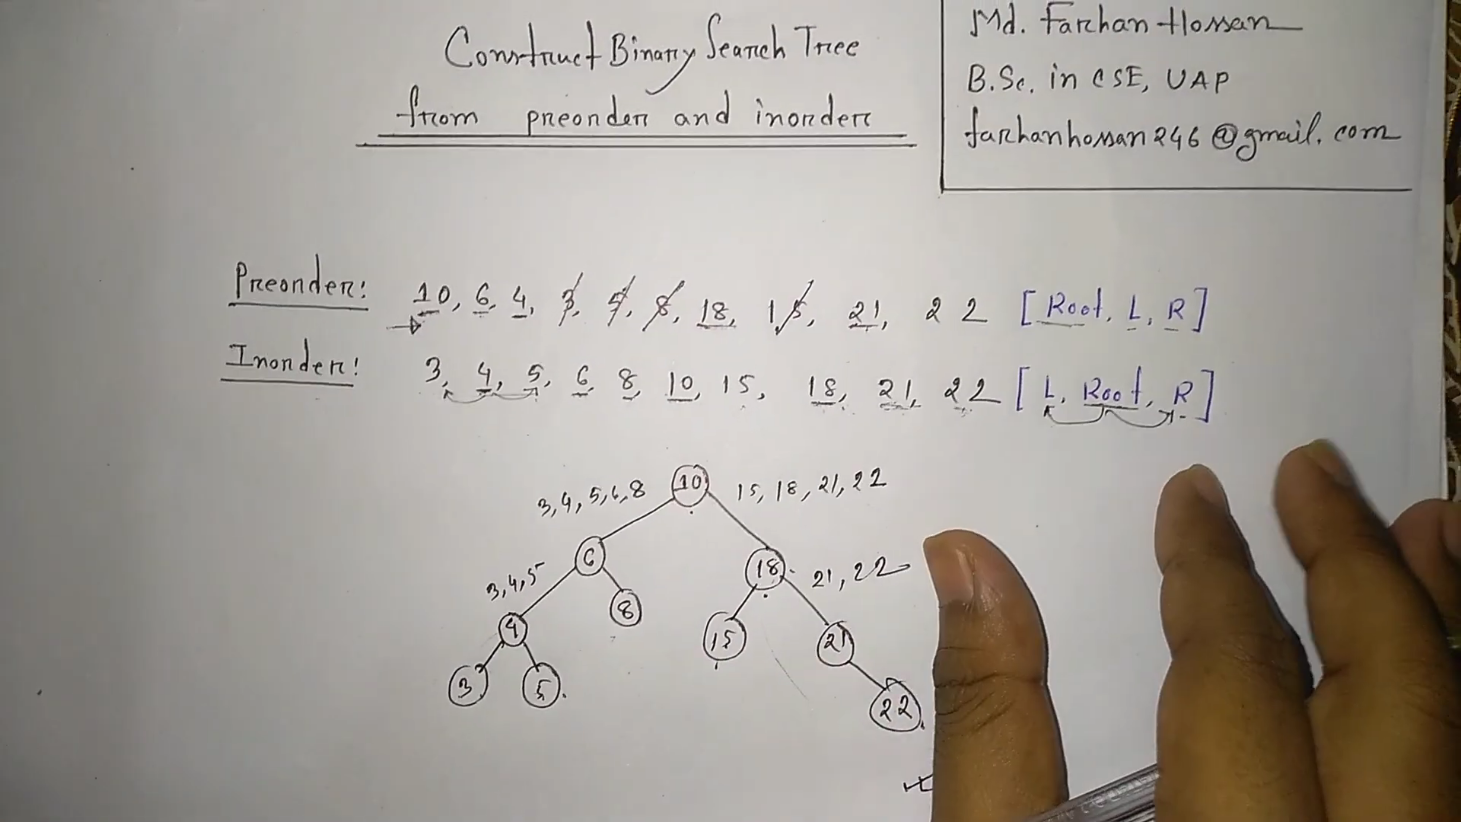 Construct Binary Search Tree
from preorder and inorder
Md. Farhan Hossan
B.Sc. in CSE, UAP
farhanhossan246@gmail.com
Preorder: 10, 6, 4, 3, 5, 8, 18, 15, 21, 22 [Root, L, R]
Inorder: 3, 4, 5, 6, 8, 10, 15, 18, 21, 22 [L, Root, R]
3, 4, 5, 6, 8 10 15, 18, 21, 22
3, 4, 5 6 18 21, 22
4 8 15 21
3 5 22